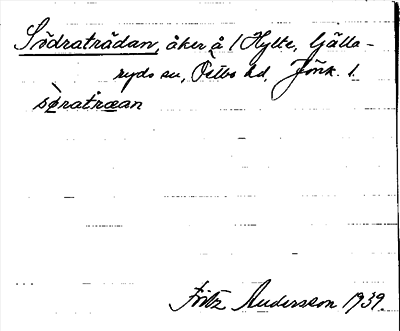 Södraträdan, åker å 1 Hylte, Gälla-
ryds sn, Östbo hd, Jönk. l.
sø̀ratræan
Fritz Andersson 1939.